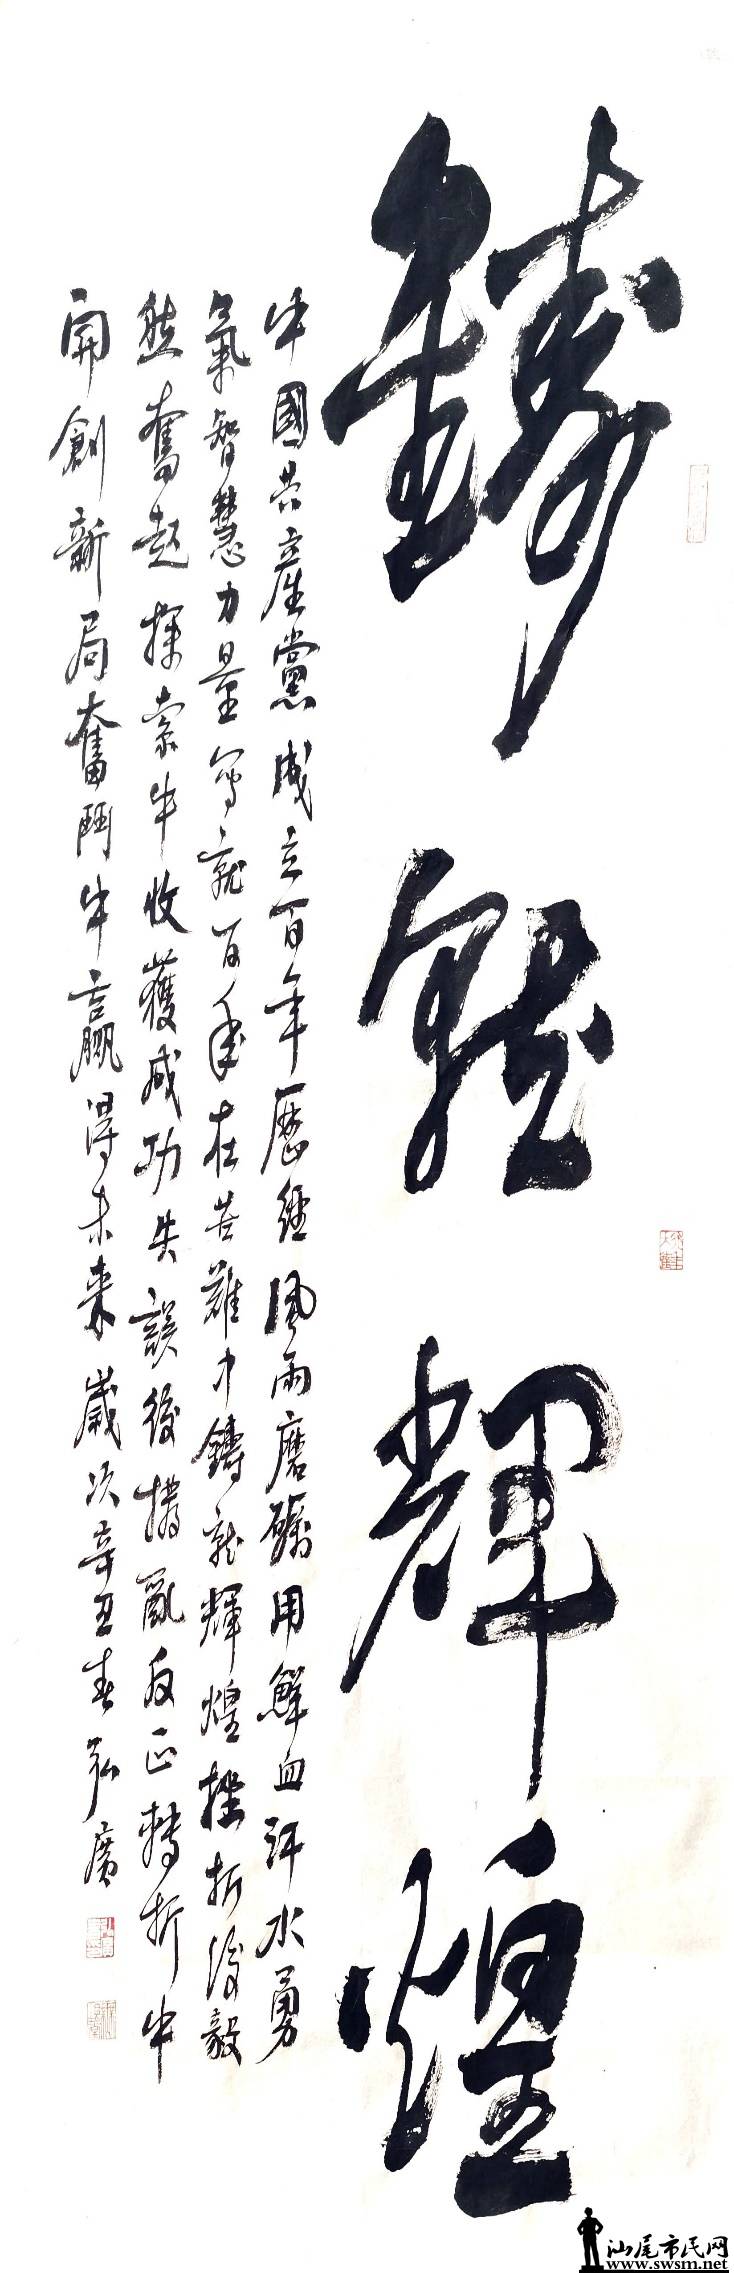 鑄就輝煌
中國共産黨成立百年歷經風雨磨礪用鮮血汗水勇
氣智慧力量寫就百年在苦難中鑄就輝煌挫折後毅
然奮起探索中收獲成功失誤後撥亂反正轉折中
開創新局奮鬥中贏得未來歲次辛丑春弘廣
汕尾市民网
www.swsm.net